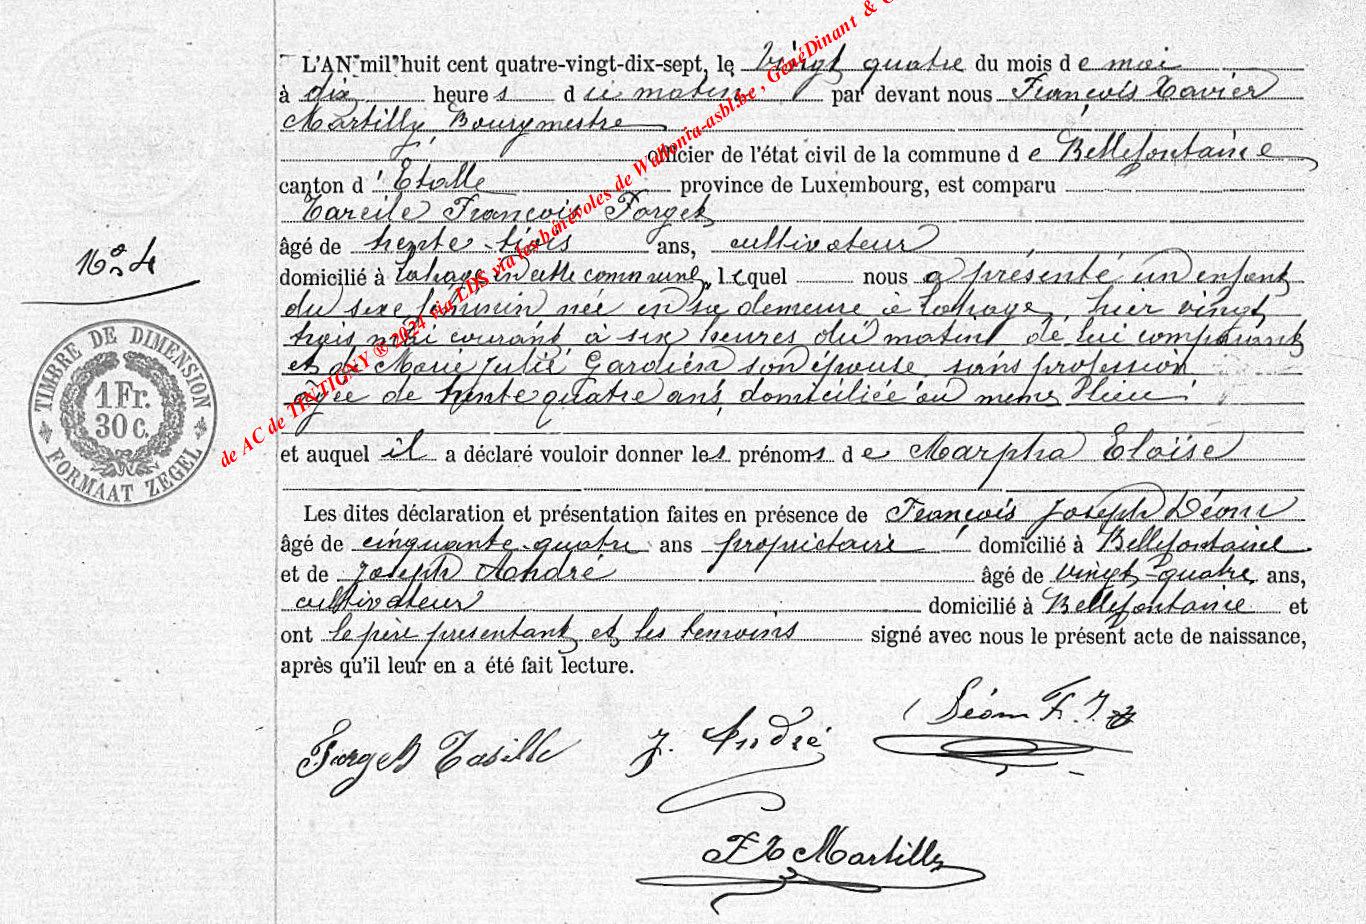 L'AN mil huit cent quatre-vingt-dix-sept, le vingt quatre du mois de mai
à dix heures du matin par devant nous François Xavier
Martilly, Bourgmestre
officier de l'état civil de la commune de Bellefontaine
canton d'Etalle province de Luxembourg, est comparu
François Forget
âgé de trente-trois ans, cultivateur
domicilié à Lahage en cette commune, lequel nous a présenté un enfant
du sexe féminin née en sa demeure à Lahage, hier vingt
trois mai courant à six heures du matin de lui comparant
et de Marie Julie Gardien son épouse sans profession
agée de trente quatre ans, domiciliée au meme lieu
et auquel il a déclaré vouloir donner les prénoms de Marpha Eloïse
Les dites déclaration et présentation faites en présence de François Joseph Déom
âgé de cinquante-quatre ans propriétaire domicilié à Bellefontaine
et de Joseph André âgé de vingt-quatre ans,
cultivateur domicilié à Bellefontaine et
ont le père présentant et les temoins signé avec nous le présent acte de naissance,
après qu'il leur en a été fait lecture.
No 4
TIMBRE DE DIMENSION
1 Fr.
30 C.
FORMAAT ZEGEL
Forget
J. André
Déom F. J.
F X Martilly
de AC de TINTIGNY ® 2024 via LDS via les bénévoles de Wallonia-asbl.be, GénéDinant &